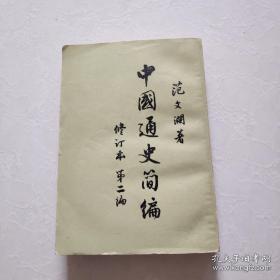 范文澜著
中國通史简编
修订本 第二编
孔夫子旧书网